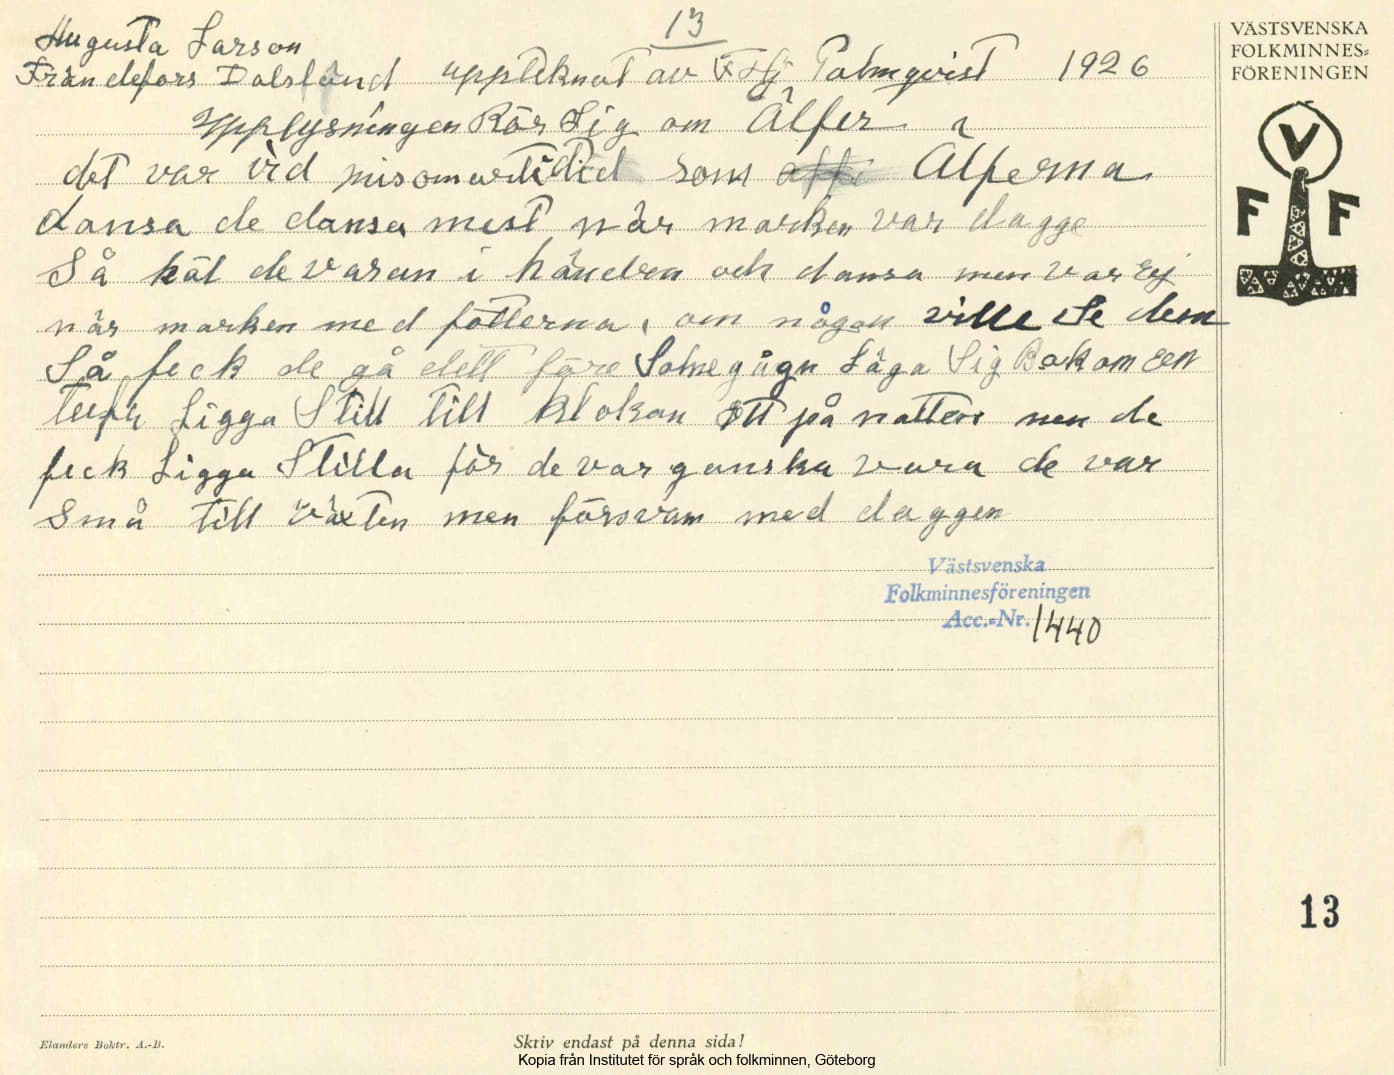 13
Augusta Larson
Frändefors Dalsland uppteknat av Palmqvist 1926
Upplysningen Rör Sig om Älfer
det var vid misomartidid som Älferna
dansa de dansa mest når marken var dagge
Så hål de varan i händren och dansa men var Ej
når marken med fötterna, om någon ville se dem
Så feck de gå ditt före Solnegågn Läga Sig Bakom een
Ligga Still till klokan ått på natten men de
feck Ligga Stilla för de var ganska vara de var
Små till växten men försvan med daggen
Västsvenska
Folkminnesföreningen
Acc.-Nr. 1440
VÄSTSVENSKA
FOLKMINNES=
FÖRENINGEN
V
F F
13
Elanders Boktr. A.-B.
Skriv endast på denna sida!
Kopia från Institutet för språk och folkminnen, Göteborg